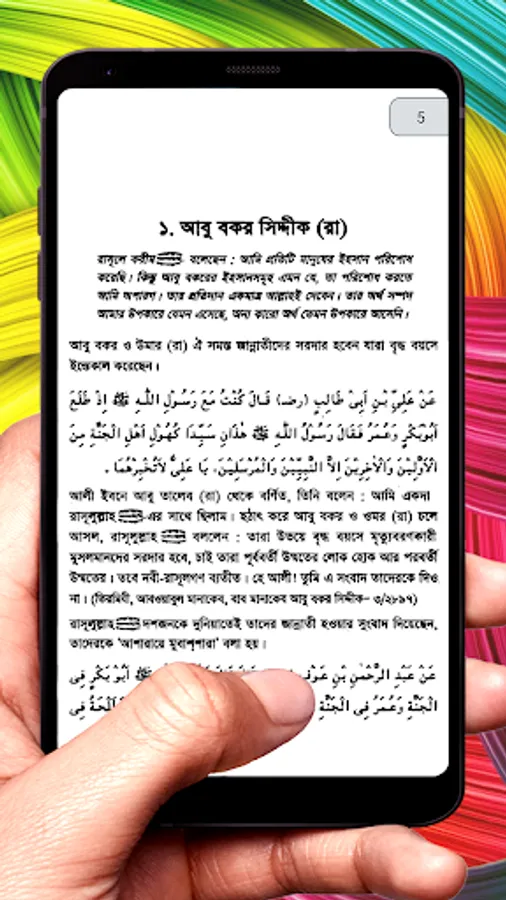 5
১. আবু বকর সিদ্দীক (রা)
রাসূলে করীম ﷺ বলেছেন : আমি প্রতিটি মানুষের ইহসান পরিশোধ
করেছি। কিন্তু আবু বকরের ইহসানসমূহ এমন যে, তা পরিশোধ করতে
আমি অপারগ। তার প্রতিদান একমাত্র আল্লাহই দেবেন। তার অর্থ সম্পদ
আমার উপকারে যেমন এসেছে, অন্য কারো অর্থ তেমন উপকারে আসেনি।
আবু বকর ও উমার (রা) ঐ সমস্ত জান্নাতীদের সরদার হবেন যারা বৃদ্ধ বয়সে
ইন্তেকাল করেছেন।
عَنْ عَلِيِّ بْنِ اَبِىْ طَالِبٍ (رضـ) قَالَ كُنْتُ مَعَ رَسُوْلِ اللّٰهِ ﷺ اِذْ طَلَعَ
اَبُوْبَكْرٍ وَعُمَرُ فَقَالَ رَسُوْلُ اللّٰهِ ﷺ هٰذَانِ سَيِّدَا كُهُوْلِ اَهْلِ الْجَنَّةِ مِنَ
الْاَوَّلِيْنَ وَالْاٰخِرِيْنَ اِلاَّ النَّبِيِّيْنَ وَالْمُرْسَلِيْنَ، يَا عَلِىُّ لَاتُخْبِرْهُمَا .
আলী ইবনে আবু তালেব (রা) থেকে বর্ণিত, তিনি বলেন : আমি একদা
রাসূলুল্লাহ ﷺ-এর সাথে ছিলাম। হঠাৎ করে আবু বকর ও ওমর (রা) চলে
আসল, রাসূলুল্লাহ ﷺ বললেন : তারা উভয়ে বৃদ্ধ বয়সে মৃত্যুবরণকারী
মুসলমানদের সরদার হবে, চাই তারা পূর্ববর্তী উম্মতের লোক হোক আর পরবর্তী
উম্মতের। তবে নবী-রাসূলগণ ব্যতীত। হে আলী! তুমি এ সংবাদ তাদেরকে দিও
না। (তিরমিযী, আবওয়াবুল মানাকেব, বাব মানাকেব আবু বকর সিদ্দীক- ৩/২৮৯৭)
রাসূলুল্লাহ ﷺ দশজনকে দুনিয়াতেই তাদের জান্নাতী হওয়ার সুসংবাদ দিয়েছেন,
তাদেরকে 'আশারায়ে মুবাশ্শারা' বলা হয়।
عَنْ عَبْدِ الرَّحْمٰنِ بْنِ عَوْفٍ ﷺ اَبُوْ بَكْرٍ فِى
الْجَنَّةِ وَعُمَرُ فِى الْجَنَّةِ فِى